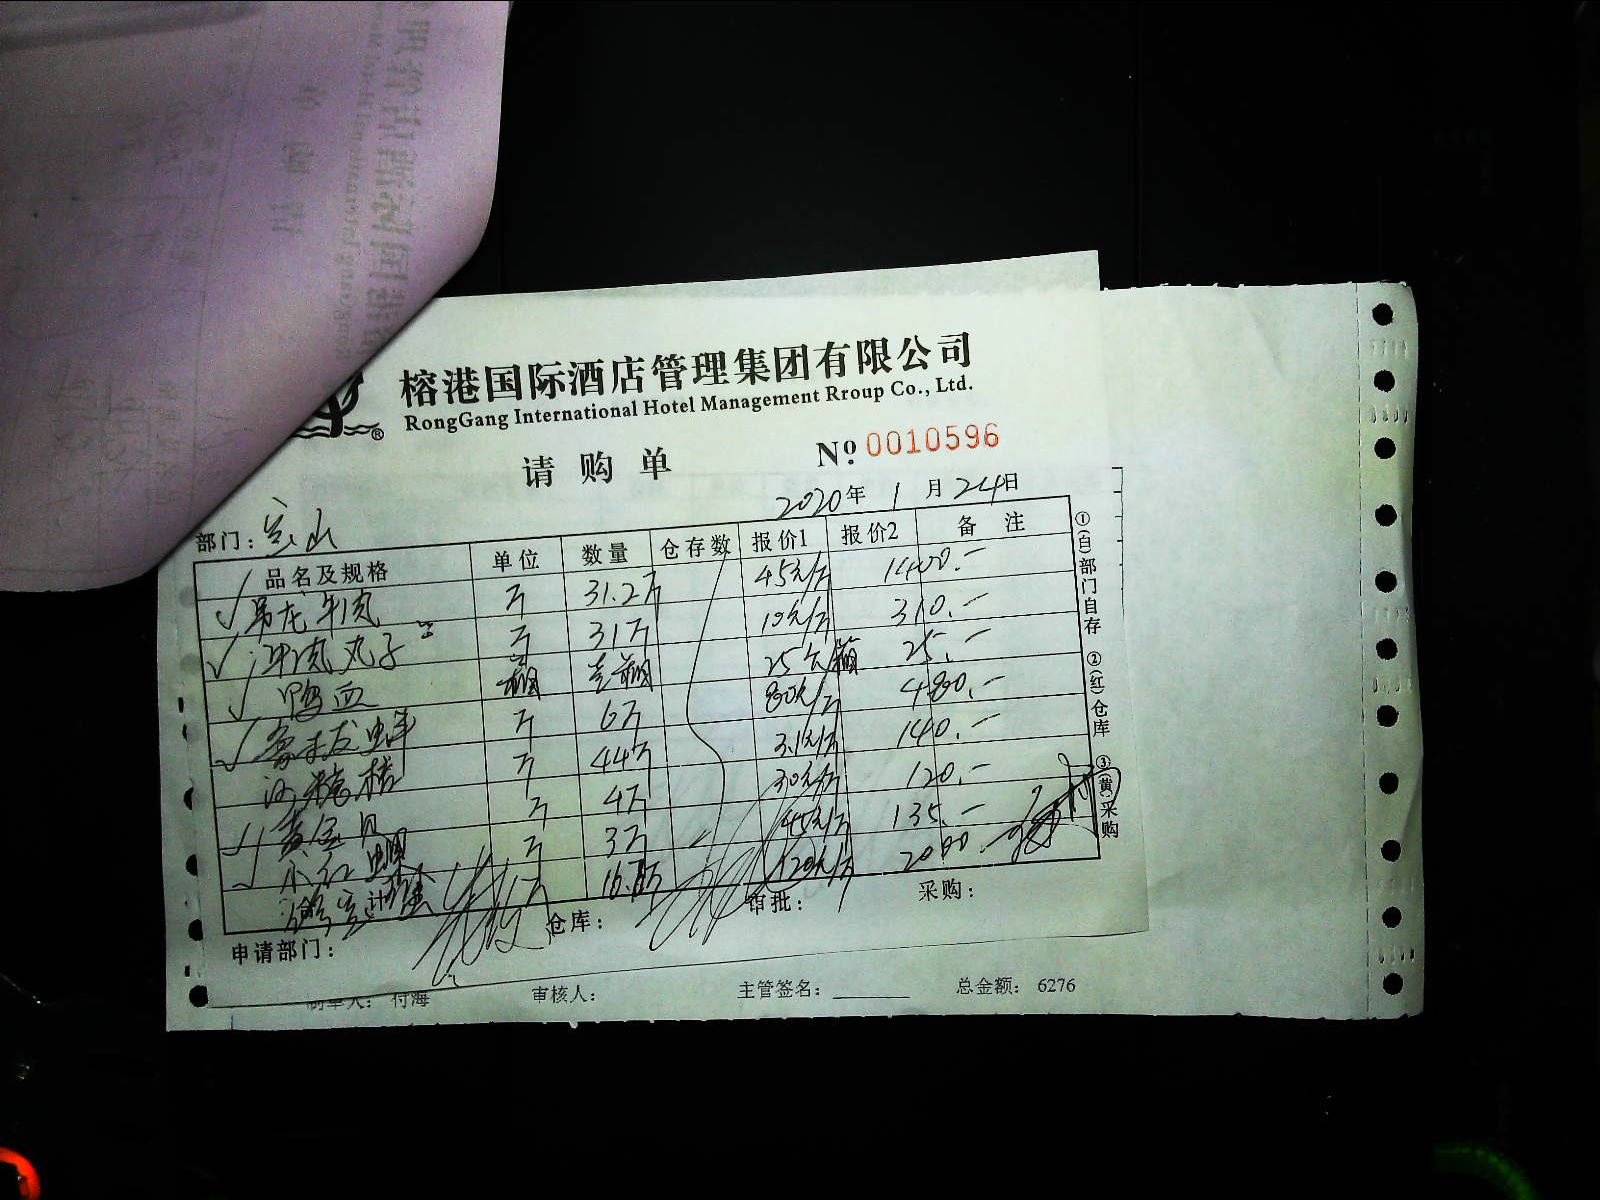 榕港国际酒店管理集团有限公司
RongGang International Hotel Management Rroup Co., Ltd.
®
请购单 Nº 0010596
2020年 1月 24日
部门：
品名及规格 单位 数量 仓存数 报价1 报价2 备注
吊龙牛肉 斤 31.2斤 45元/斤 1400.-
牛肉丸子 斤 31斤 10元/斤 310.-
鸭血 箱 壹箱 25元/箱 25.-
斤 6斤 80元/斤 480.-
沙糖桔 斤 44斤 3.1元/斤 140.-
黄金贝 斤 4斤 30元/斤 120.-
小红 斤 3斤 45元/斤 135.-
斤 120元/斤 2000.-
申请部门： 仓库： 审批： 采购：
①(白)部门自存 ②(红)仓库 ③(黄)采购
制单人： 付海 审核人： 主管签名： 总金额： 6276